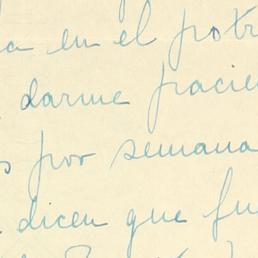 a en el potr
darme pacie
s por semana
dicen que fu